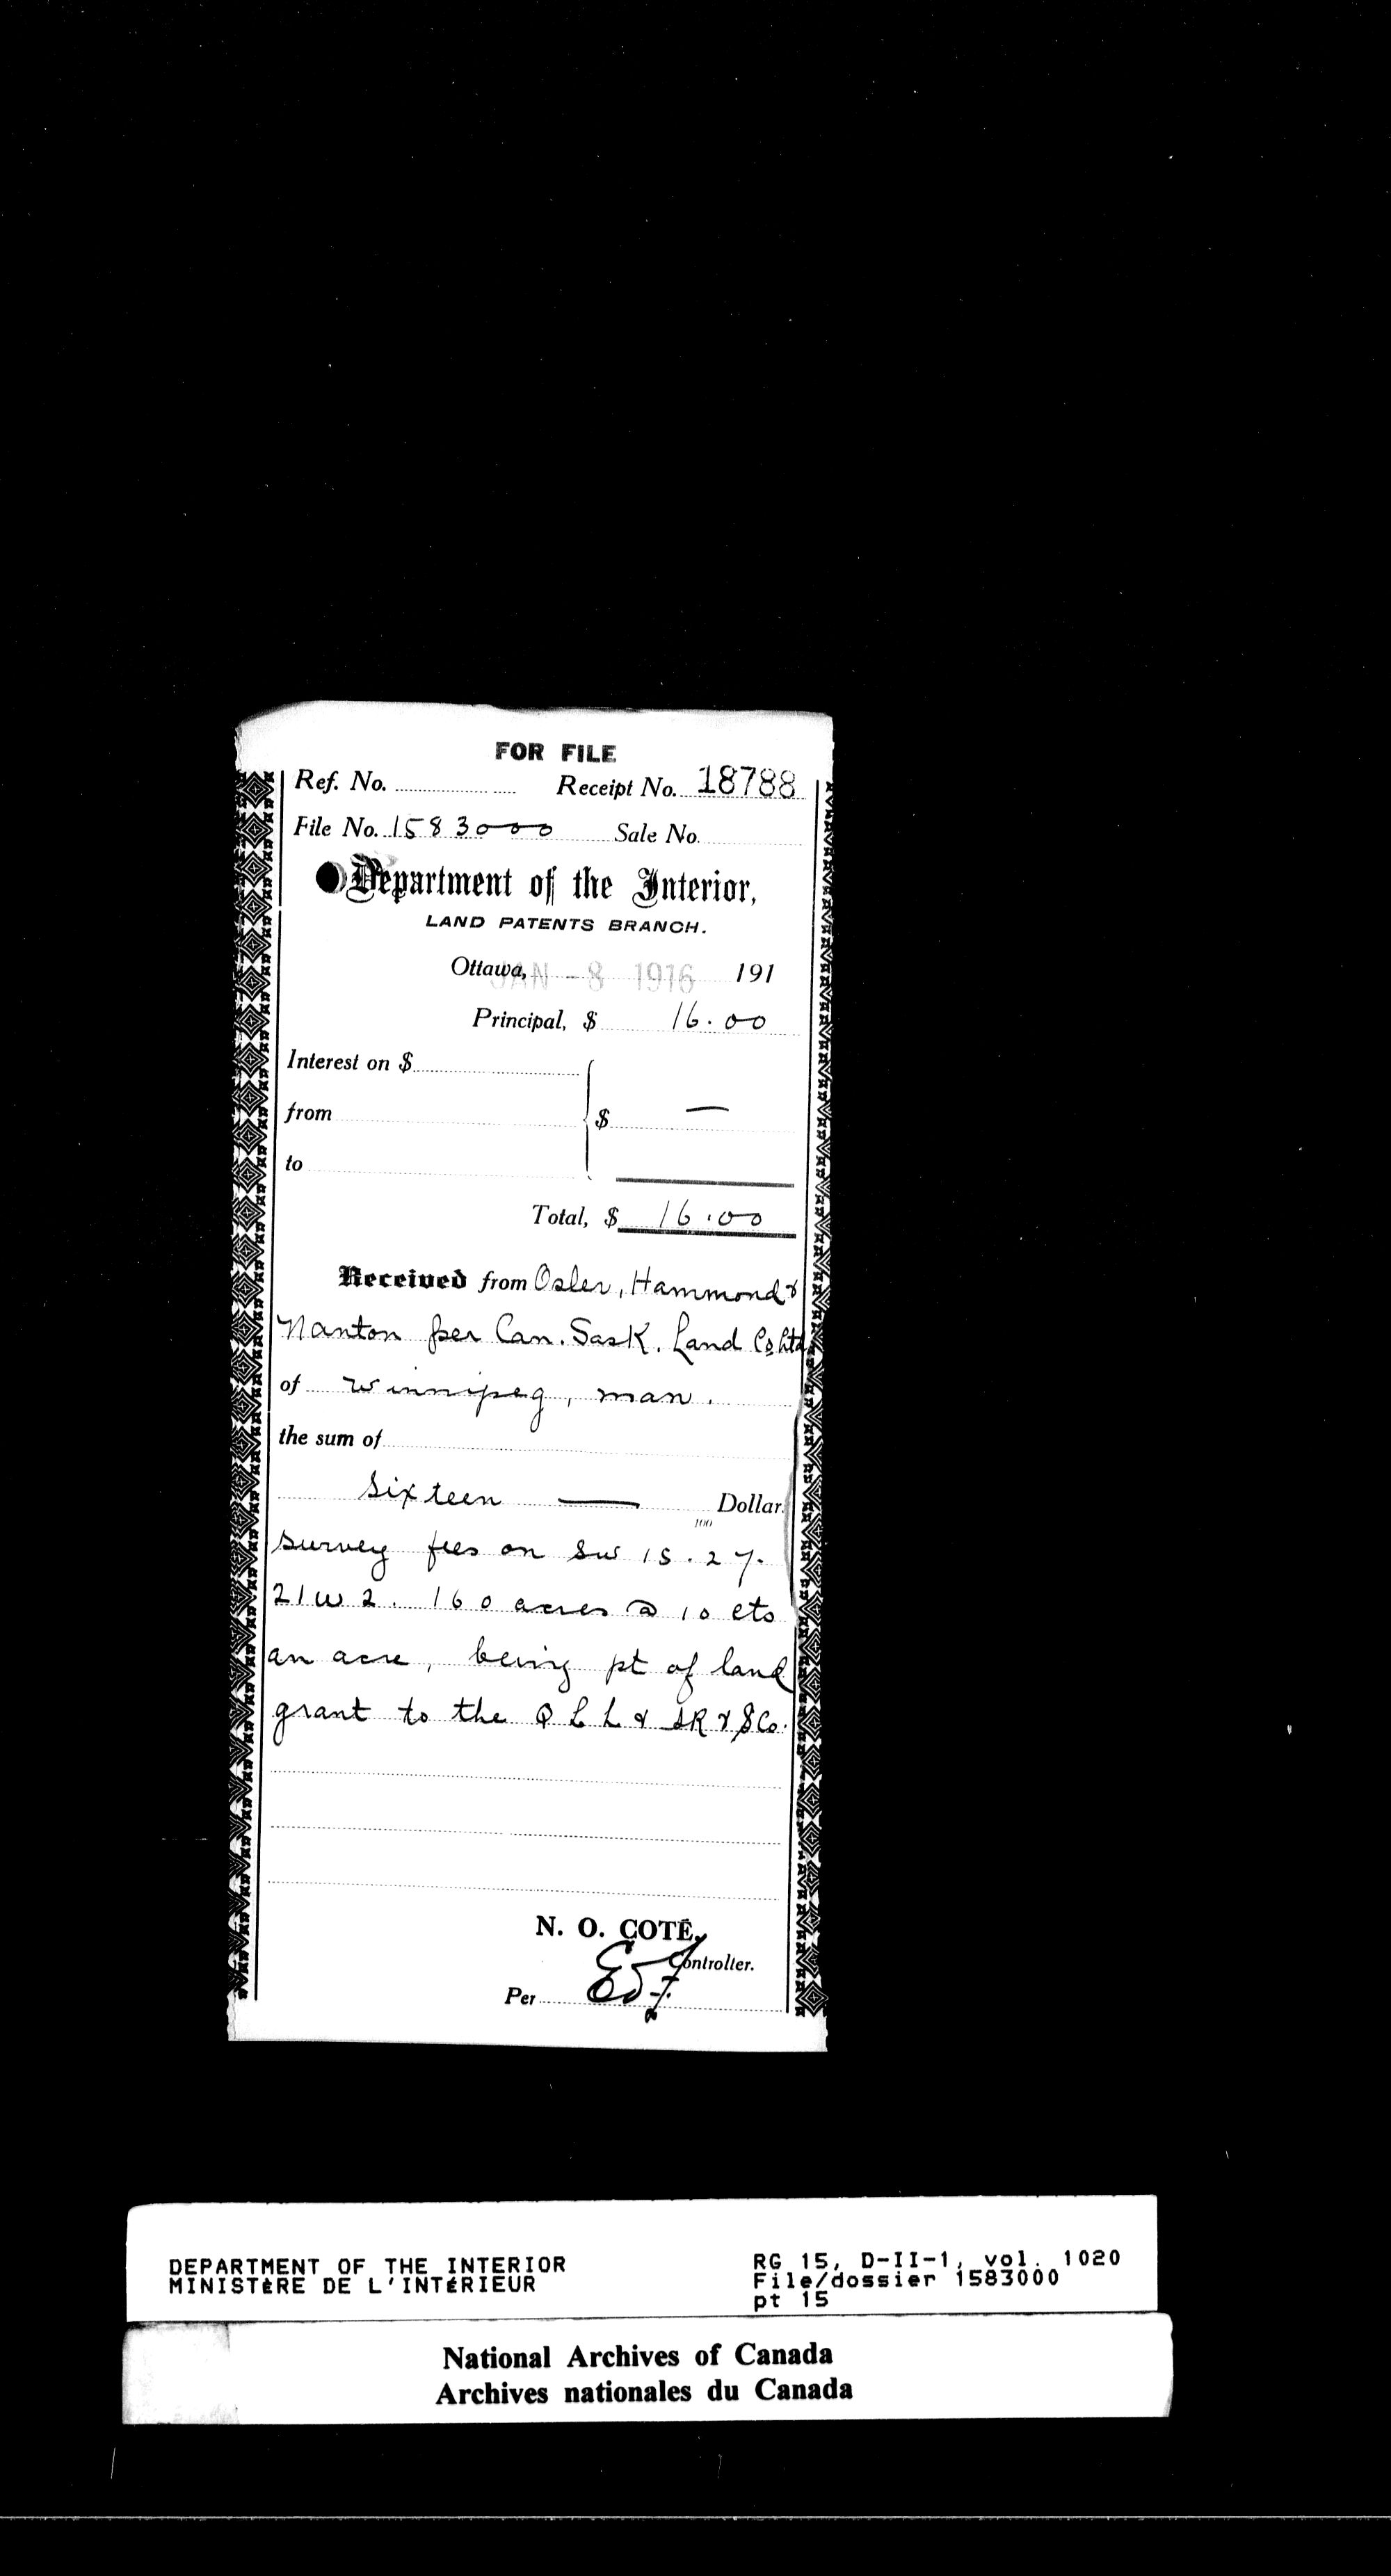 FOR FILE
Ref. No. Receipt No. 18788
File No. 1583000 Sale No.
Department of the Interior,
LAND PATENTS BRANCH.
Ottawa, JAN -8 1916 191
Principal, $ 16.00
Interest on $
from $ —
to
Total, $ 16.00
Received from Osler, Hammond &
Nanton per Can. Sask. Land Co Ltd
of Winnipeg, man.
the sum of
Sixteen — Dollar
100
survey fees on SW 15.27.
21 W 2. 160 acres @ 10 cts
an acre, being pt of land
grant to the Q L L & SR & S Co.
N. O. COTÉ,
Controller.
Per
DEPARTMENT OF THE INTERIOR
MINISTÈRE DE L'INTÉRIEUR
RG 15, D-II-1, vol. 1020
File/dossier 1583000
pt 15
National Archives of Canada
Archives nationales du Canada